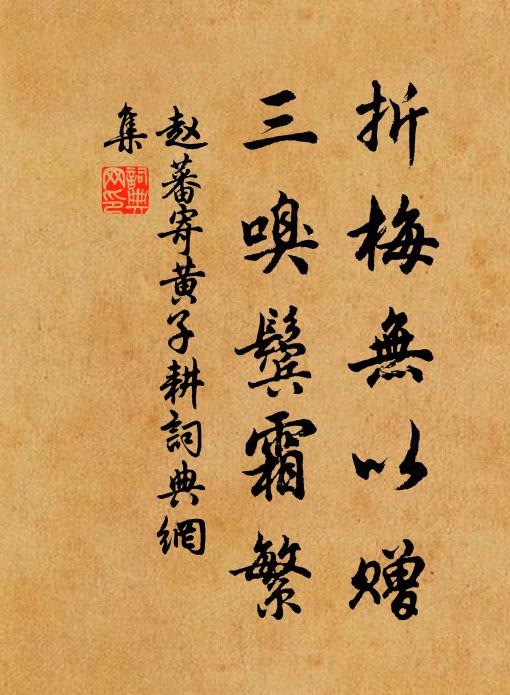 折梅無以赠
三嗅鬓霜繁
赵蕃寄黄子耕詞典網
集
詞典
网印